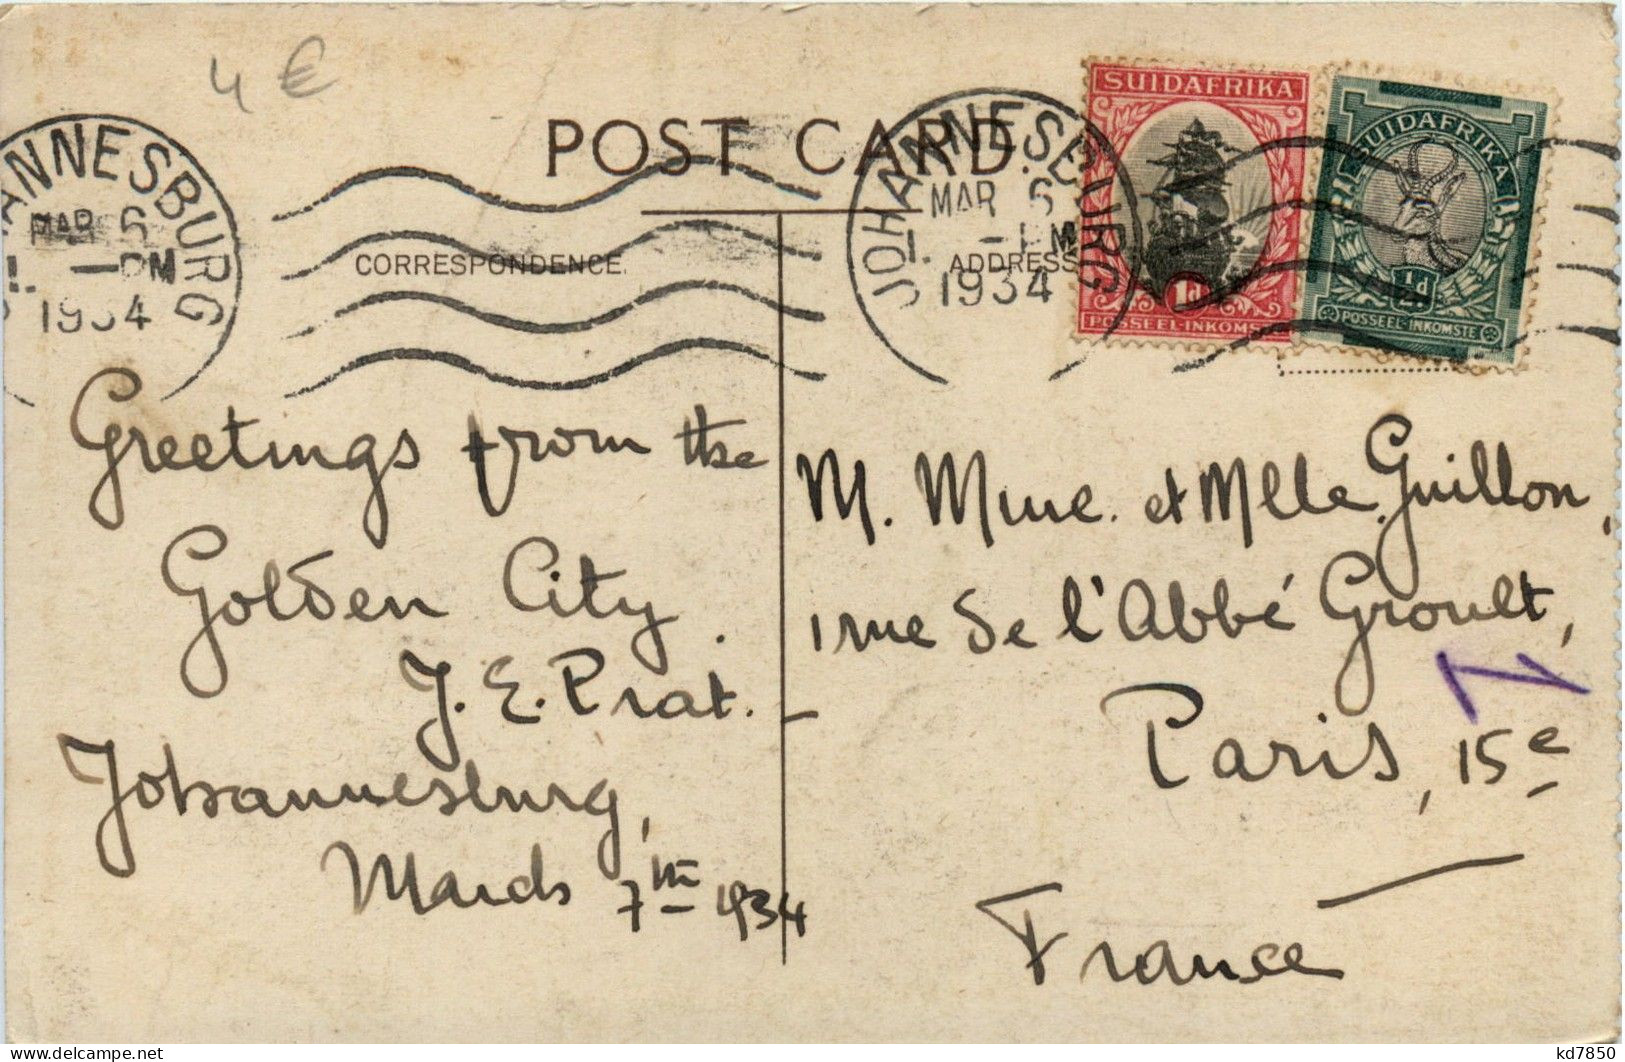 4 €
POST CARD.
CORRESPONDENCE
ADDRESS
ANNESBURG
MAR 6
1 - PM
1934
JOHANNESBURG
MAR 6
1 - PM
1934
SUIDAFRIKA
1d
POSSEEL-INKOMSTE
SUIDAFRIKA
½d
POSSEEL-INKOMSTE
Greetings from the
Golden City.
J. E. Prat.
Johannesburg,
March 7th 1934
M. Mme. et Mlle. Guillon,
1 rue de l'Abbé Groult,
Paris, 15e
France
delcampe.net
kd7850